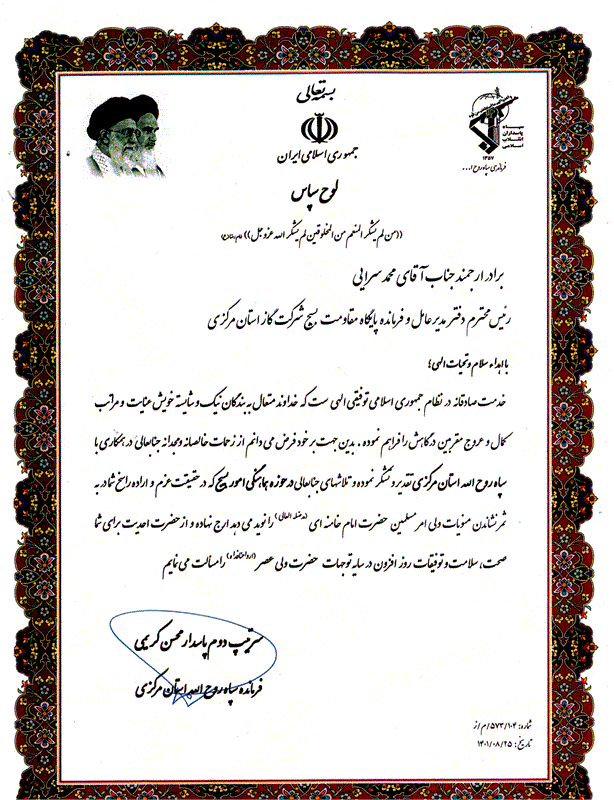 بسمه تعالی
جمهوری اسلامی ایران
سپاه
پاسداران
انقلاب
اسلامی
۱۳۵۷
فرماندهی سپاه روح ا...
لوح سپاس
((من لم یشکر المنعم من المخلوقین لم یشکر الله عزوجل))
برادر ارجمند جناب آقای محمد سرایی
رئیس محترم دفتر مدیرعامل و فرمانده پایگاه مقاومت بسیج شرکت گاز استان مرکزی
با اهداء سلام و تحیات الهی؛
خدمت صادقانه در نظام جمهوری اسلامی توفیقی الهی ست که خداوند متعال به بندگان نیک و شایسته خویش عنایت و مراتب
کمال و عروج مقربین درگاهش را فراهم نموده. بدین جهت بر خود فرض می دانم از زحمات خالصانه و مجدانه جنابعالی در همکاری با
سپاه روح الله استان مرکزی تقدیر و تشکر نموده و تلاشهای جنابعالی در حوزه هماهنگی امور بسیج که در حقیقت عزم و اراده راسخ شما در به
ثمر نشاندن منویات ولی امر مسلمین حضرت امام خامنه ای (مدظله العالی) را نوید می دهد ارج نهاده و از حضرت احدیت برای شما
صحت، سلامت و توفیقات روز افزون در سایه توجهات حضرت ولی عصر (ارواحنافداه) را مسألت می نمایم
سرتیپ دوم پاسدار محسن کریمی
فرمانده سپاه روح الله استان مرکزی
شماره: ۵۷۳/۱۰۴/م/ز
تاریخ: ۱۴۰۱/۰۸/۲۵